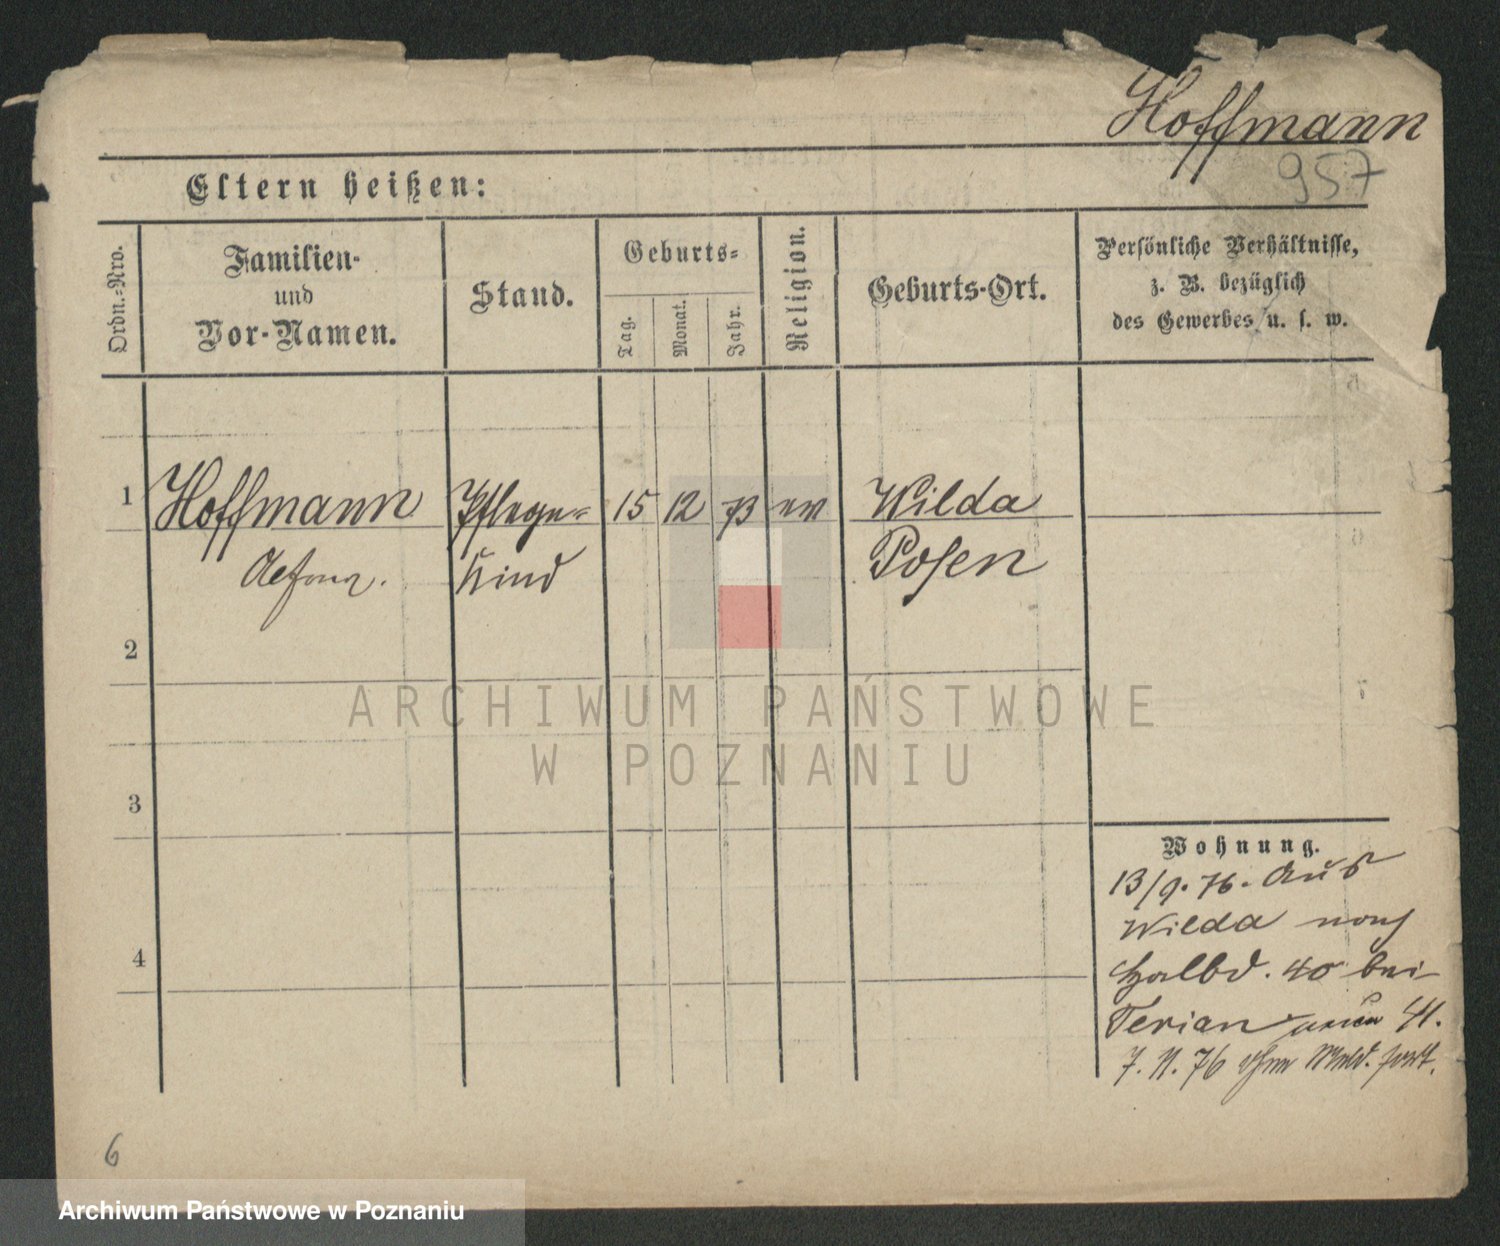 Hoffmann
957
Eltern heißen:
Ordn.-Nro.
Familien-
und
Vor-Namen.
Stand.
Geburts-
Tag.
Monat.
Jahr.
Religion.
Geburts-Ort.
Persönliche Verhältnisse,
z. B. bezüglich
des Gewerbes u. s. w.
1 Hoffmann Pflege- 15 12 73 ev Wilda
Kind Posen
2
3
4
Wohnung.
13/9. 76. Aus
Wilda nach
Halbd. 40 bei
Terian 41.
7. 11. 76 ohne Meld. fort.
6
ARCHIWUM PAŃSTWOWE
W POZNANIU
Archiwum Państwowe w Poznaniu